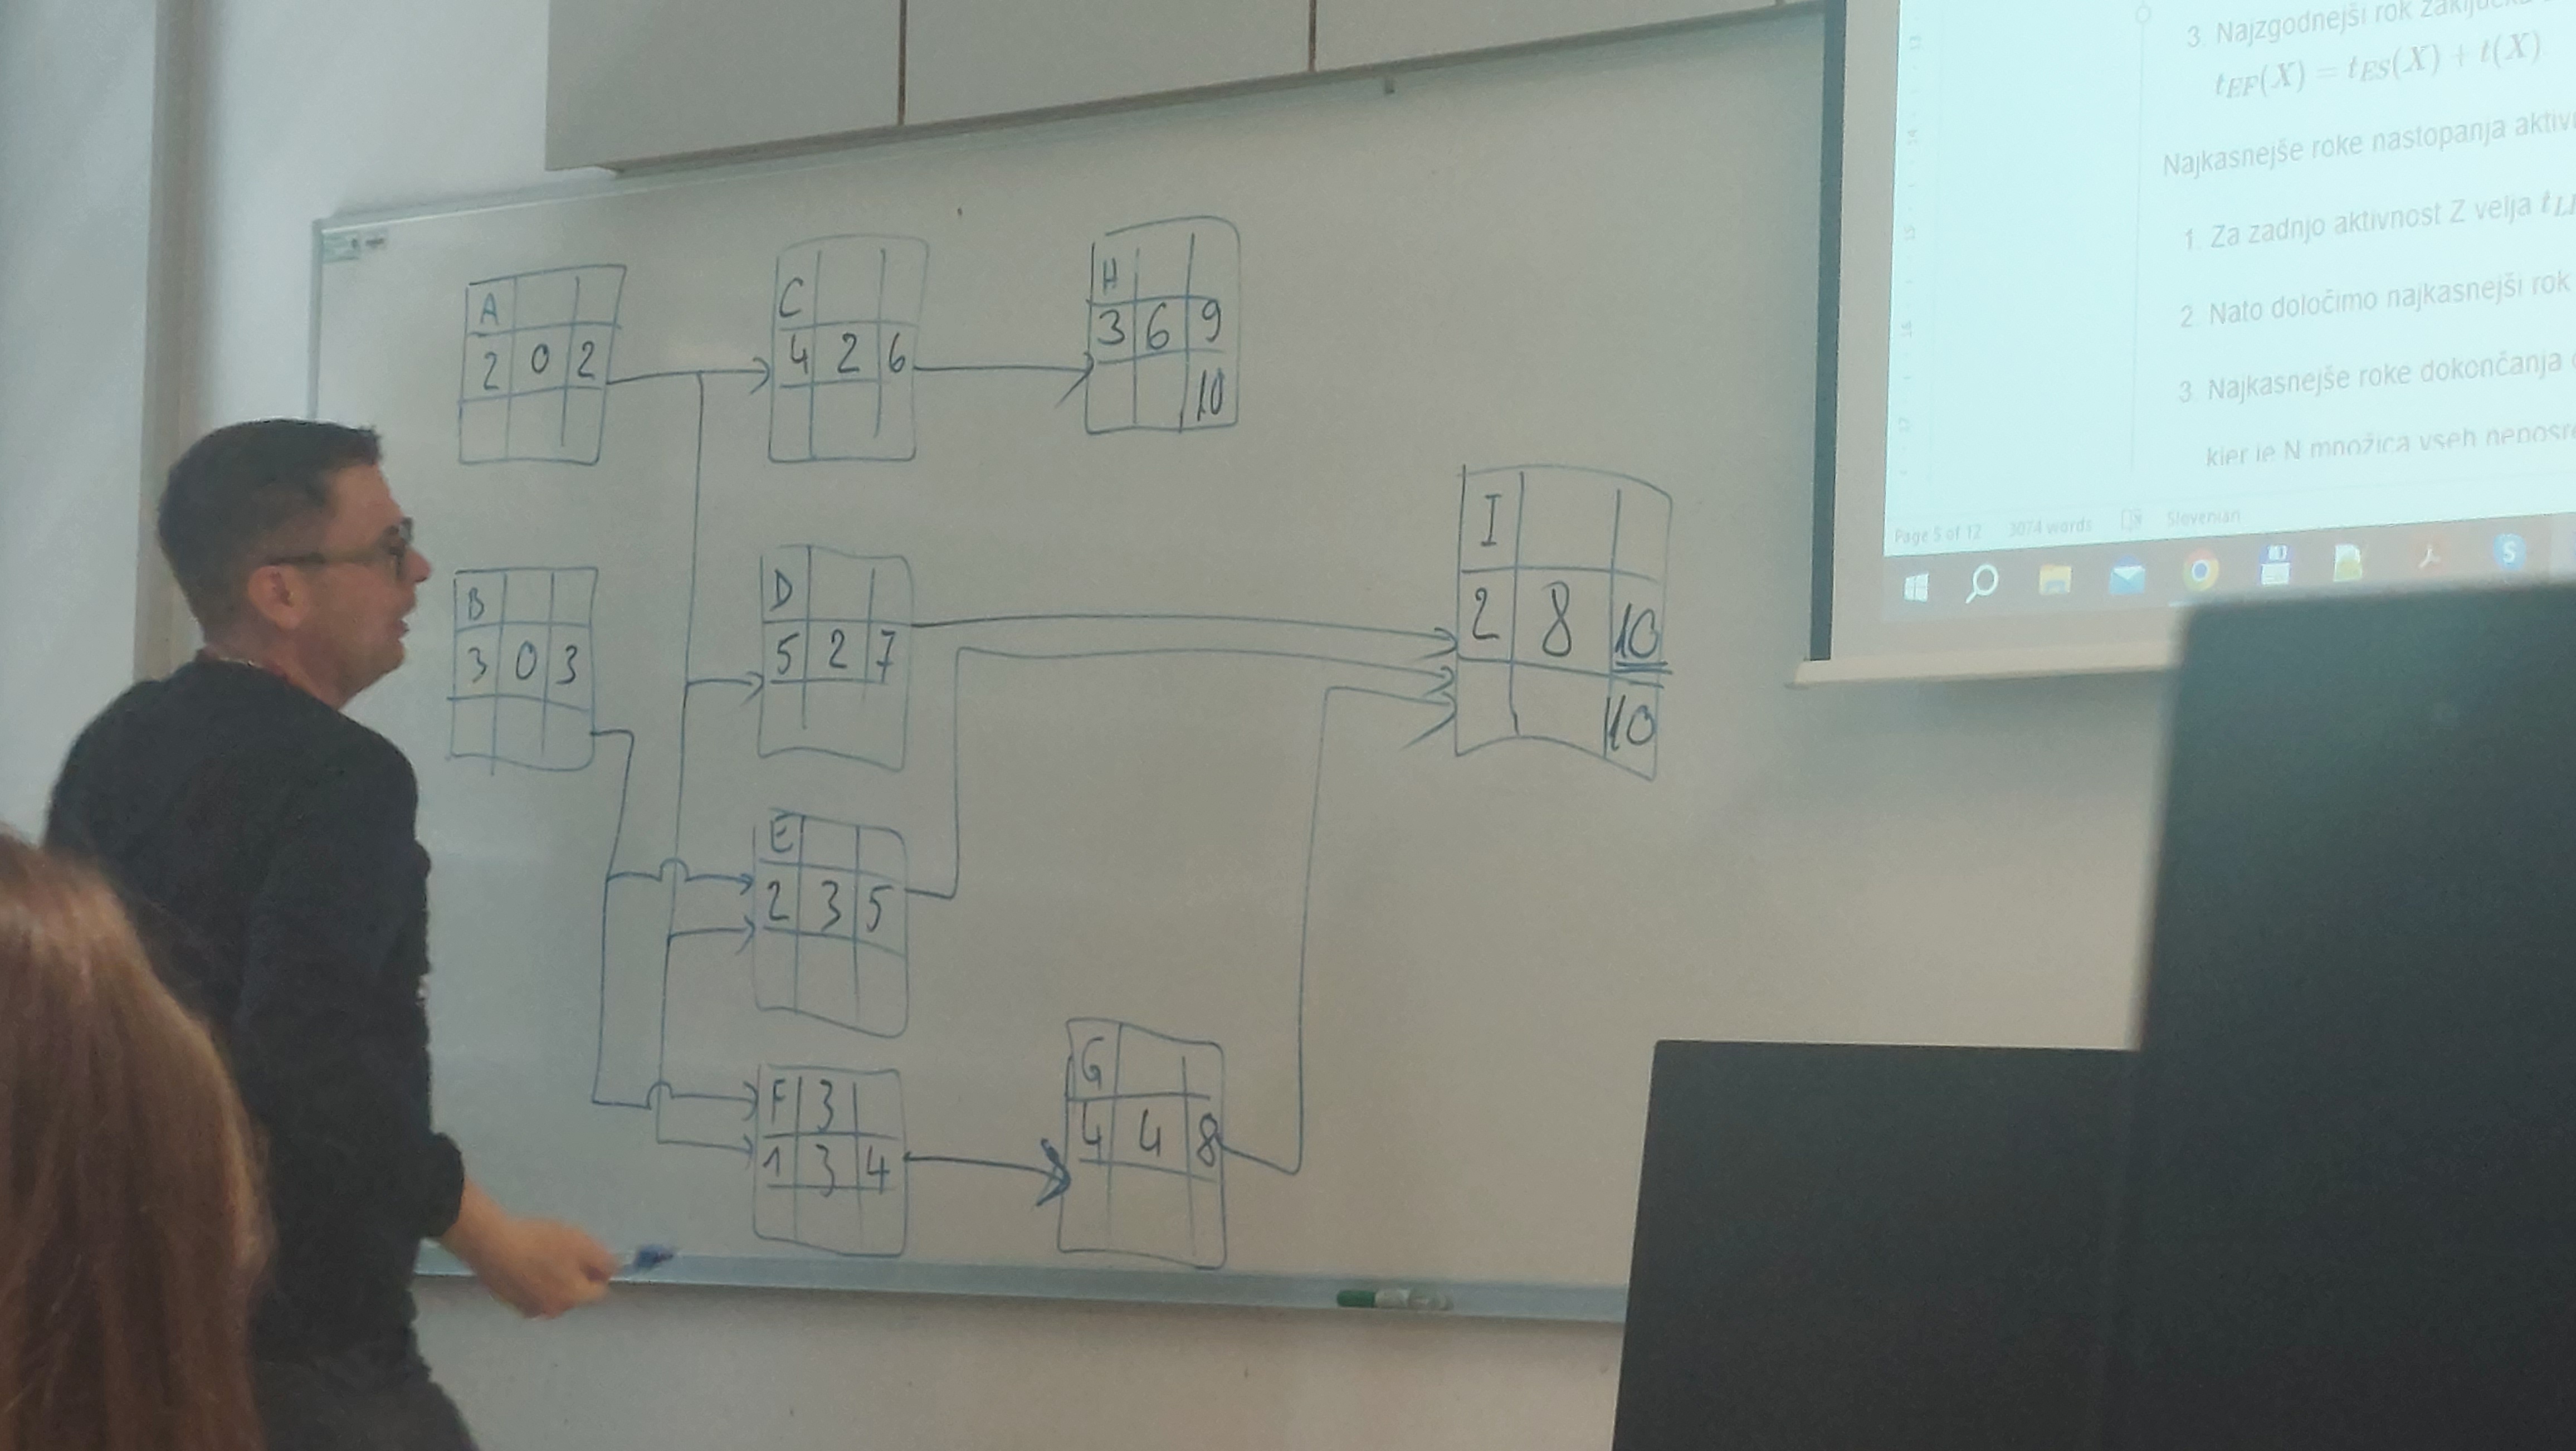 A
2 0 2
C
4 2 6
H
3 6 9
10
B
3 0 3
D
5 2 7
I
2 8 10
10
E
2 3 5
F 3
1 3 4
G
4 4 8
3. Najzgodnejši rok zaključka
tEF(X) = tES(X) + t(X)
Najkasnejše roke nastopanja
1. Za zadnjo aktivnost Z velja
2. Nato določimo najkasnejši rok
3. Najkasnejše roke dokončanja
kjer je N množica vseh
Page 5 of 12 3074 words Slovenian